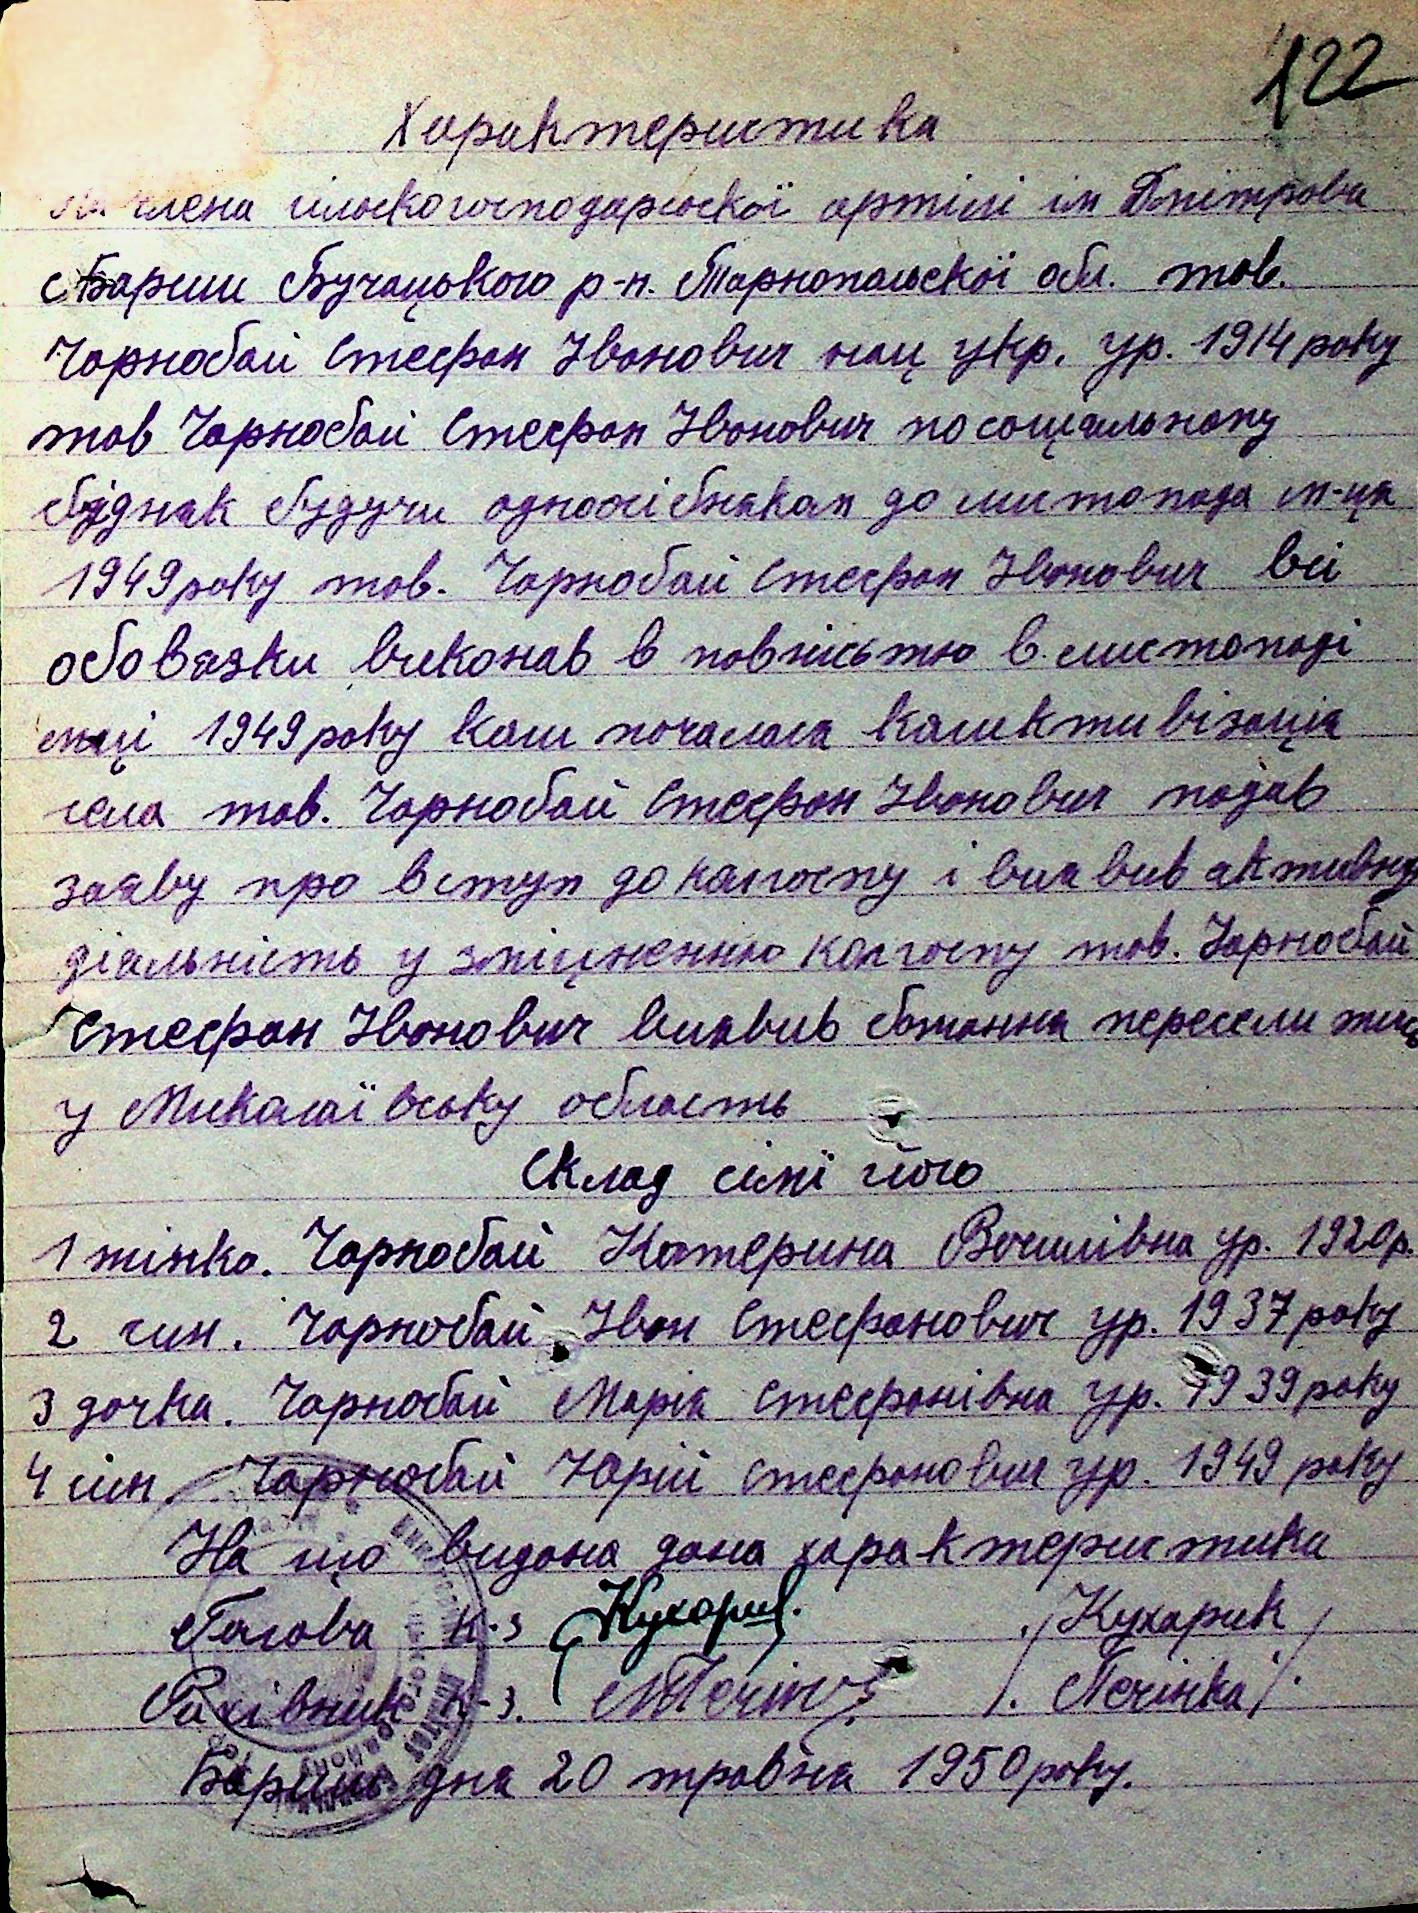 122
Характеристика
На члена сільскогосподарської артілі ім Дмітрова
с Бариш Бучацького р-н. Тарнопольскої обл. тов.
Чорнобай Стефан Іванович нац укр. ур. 1914 року
тов Чорнобай Стефан Іванович по соціальному
бідняк будучи одноосібником до листопада м-ця
1949 року тов. Чорнобай Стефан Іванович всі
обовязки виконав в повністью в листопаді
м-ці 1949 року коли почалася колективізація
села тов. Чорнобай Стефан Іванович подав
заяву про вступ до колгоспу і виявив активну
діяльність у зміцненню колгоспу тов. Чорнобай
Стефан Іванович виявив бажання переселитись
у Миколаївську область
Склад сімї його
1 жінка. Чорнобай Катерина Василівна ур. 1920 р.
2 син. Чорнобай Іван Стефанович ур. 1937 року
3 дочка. Чорнобай Марія Стефанівна ур. 1939 року
4 син. Чорнобай Юрій Стефанович ур. 1949 року
На що видана дана характеристика
Голова к-з Кухарик. / Кухарик /
Рахівник к-з. МПечінка /. Печінка /.
Бариш дня 20 травня 1950 року.